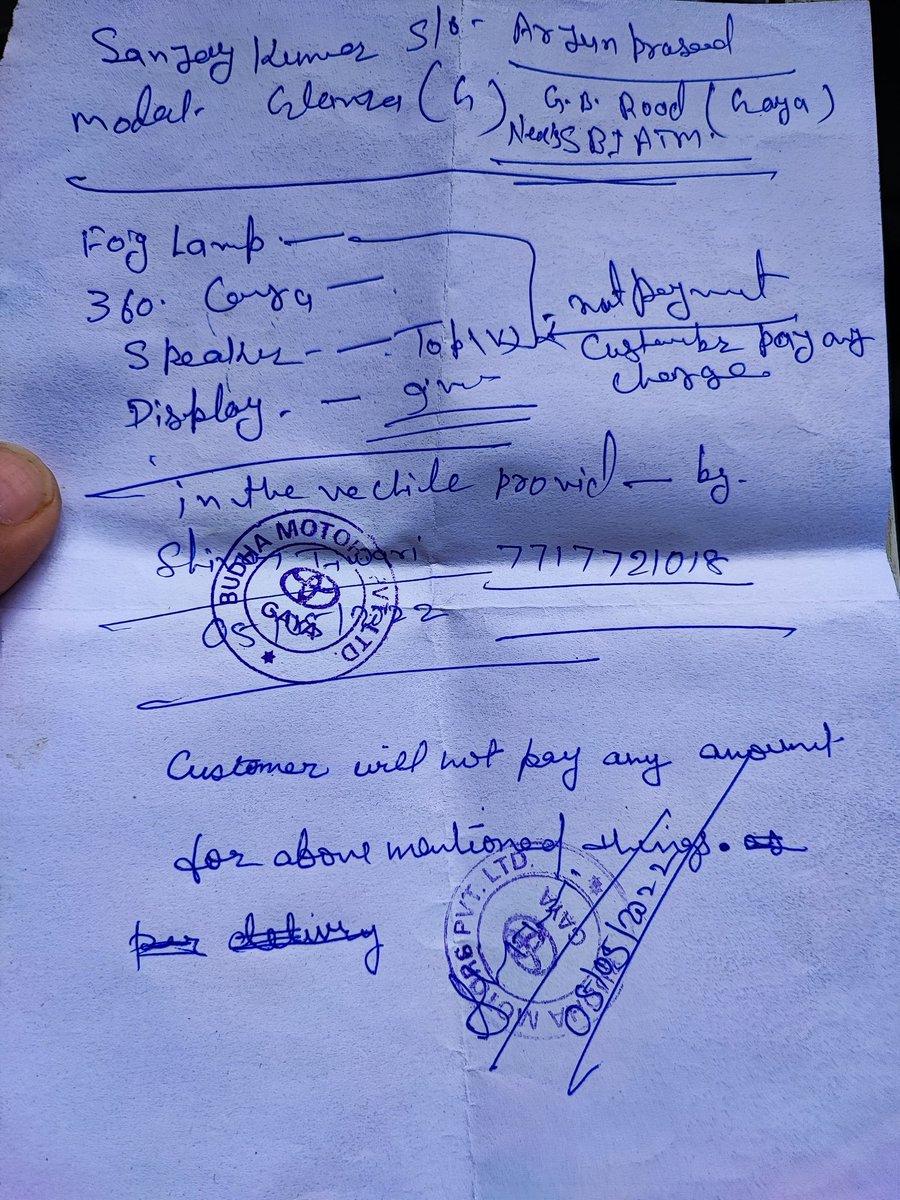 Sanjay Kumar S/o- Arjun prasad
Model- Glanza (G) G.B. Road (Gaya)
Near SBI ATM.
Fog Lamp. —
360. —
Speaker - — Top (V) not payment
Display. — give Customer pay any charge.
in the vechile provid — by.
Tiwari 7717721018
05/05/2022
BUDDHA MOTORS PVT. LTD.
GAYA
Customer will not pay any amount
for above mentioned things. as
per delivery
MOTORS PVT. LTD.
GAYA
05/05/2022